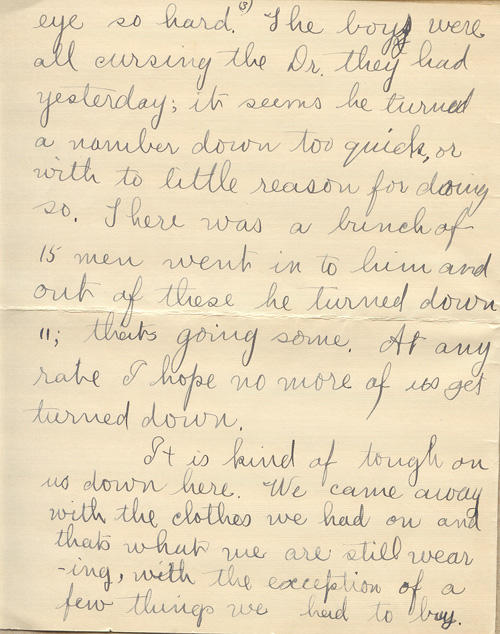 (3)
eye so hard. The boys were
all cursing the Dr. they had
yesterday; it seems he turned
a number down too quick, or
with to little reason for doing
so. There was a bunch of
15 men went in to him and
out of these he turned down
11; thats going some. At any
rate I hope no more of us get
turned down.
It is kind of tough on
us down here. We came away
with the clothes we had on and
thats what we are still wear
-ing, with the exception of a
few things we had to buy.